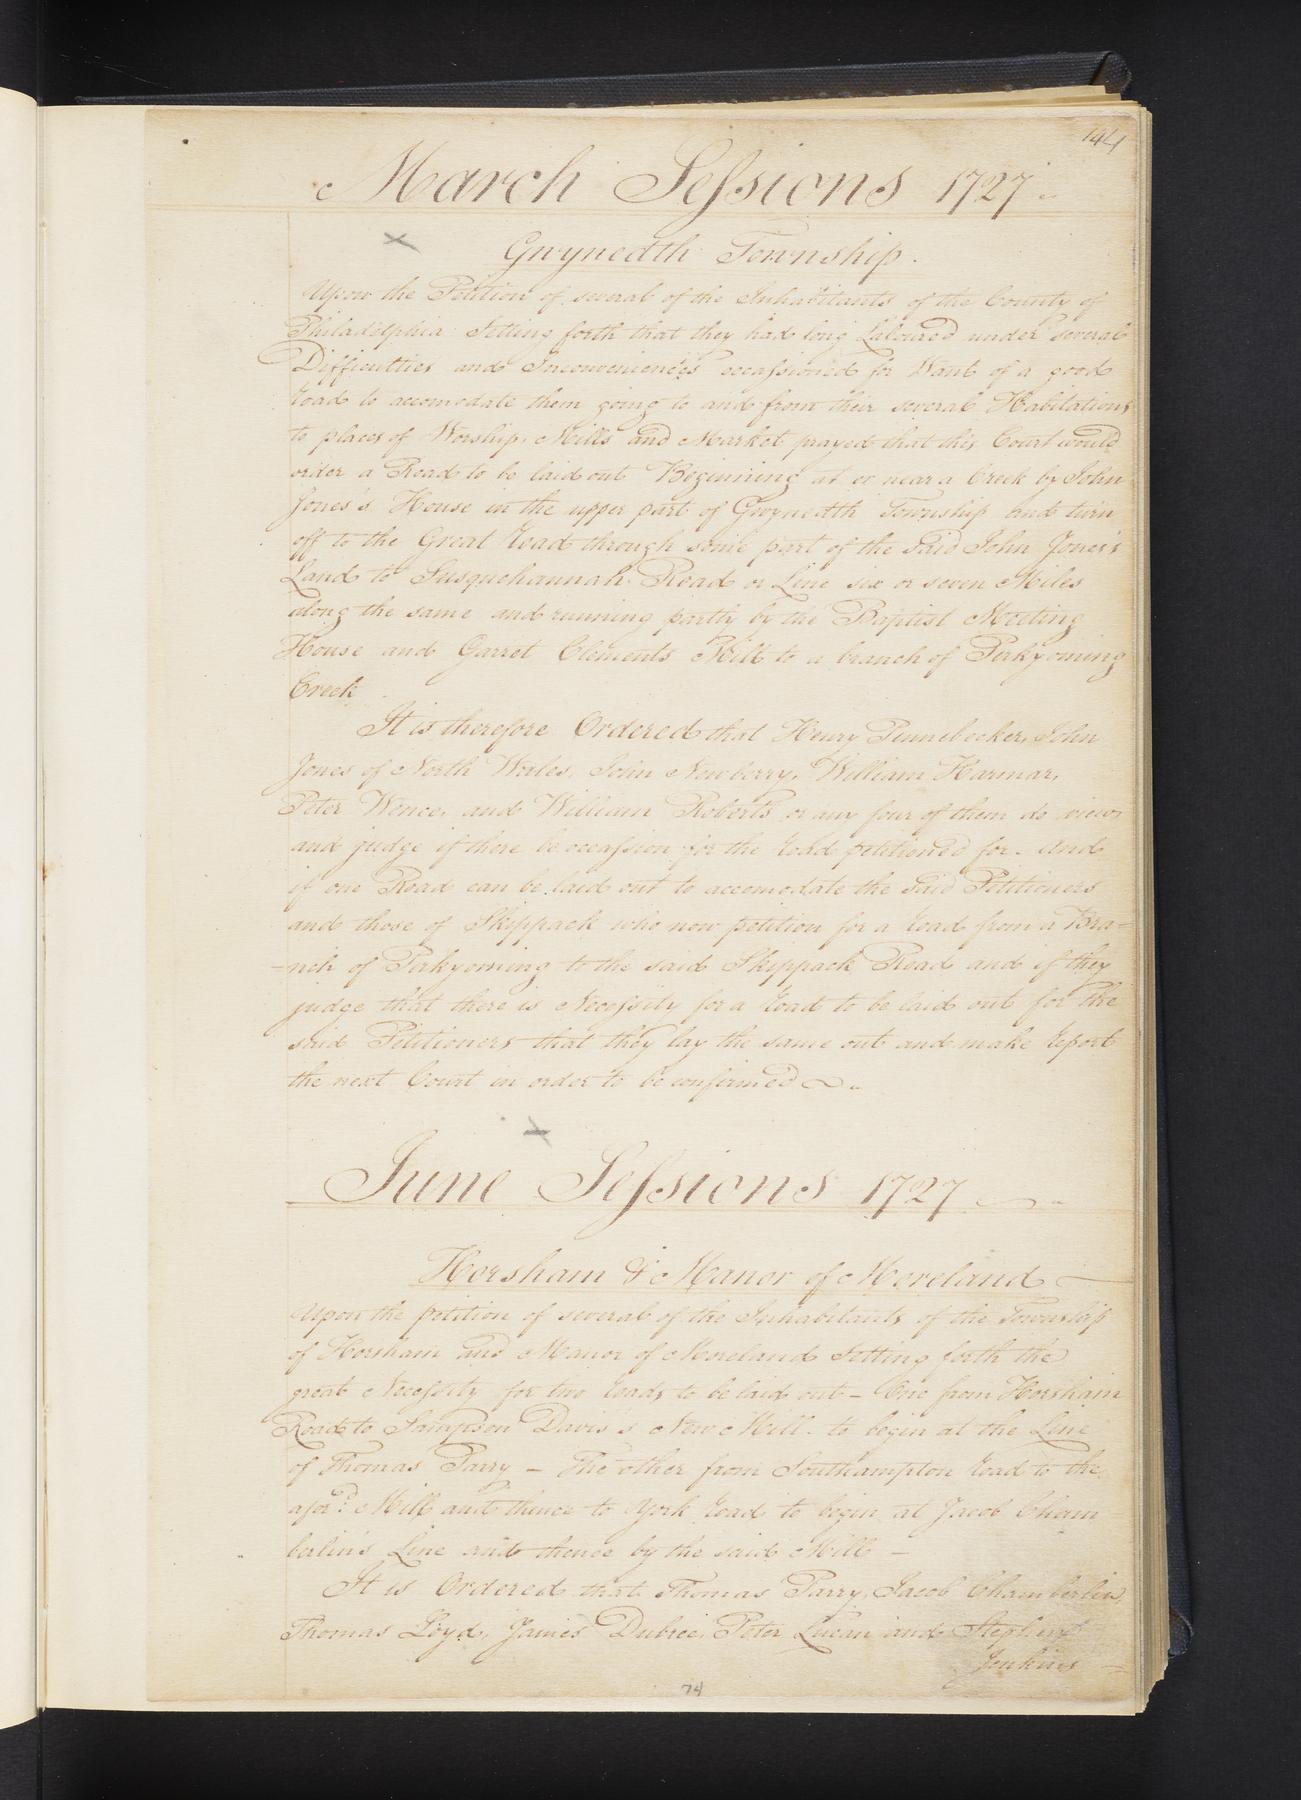 144
March Sessions 1727
Gwynedth Township.
Upon the Petition of several of the Inhabitants of the County of
Philadelphia Setting forth that they had long Laboured under several
Difficulties and Inconveniencies occassioned for Want of a good
road to accomodate them going to and from their several Habitations
to places of Worship, Mills and Market prayed that this Court would
order a Road to be laid out Beginning at or near a Creek by John
Jones's House in the upper part of Gwynedth Township and turn
off to the Great road through some part of the said John Jones's
Land to Susquehannah Road or Line six or seven Miles
along the same and running partly by the Baptist Meeting
House and Garret Clements Mill to a branch of Perkyoming
Creek
It is therefore Ordered that Henry Pennebecker, John
Jones of North Wales, John Newberry, William Harmar,
Peter Wence, and William Roberts or any four of them do view
and judge if there be occassion for the road petitioned for. And
if one Road can be laid out to accomodate the said Petitioners
and those of Skippack who now petition for a road from a Bra=
=nch of Perkyoming to the said Skippack Road and if they
judge that there is Necessity for a road to be laid out for the
said Petitioners that they lay the same out and make report
the next Court in order to be confirmed
June Sessions 1727
Horsham & Manor of Moreland
Upon the petition of several of the Inhabitants of the Township
of Horsham and Manor of Moreland Setting forth the
great Necessity for two roads to be laid out – One from Horsham
Road to Sampson Davis's New Mill. to begin at the Line
of Thomas Parry – The other from Southampton road to the
afor.d Mill and thence to York road to begin at Jacob Cham
berlin's Line and thence by the said Mill –
It is Ordered that Thomas Parry, Jacob Chamberlin,
Thomas Loyd, James Dubree, Peter Lucan and Stephen
Jenkins
74